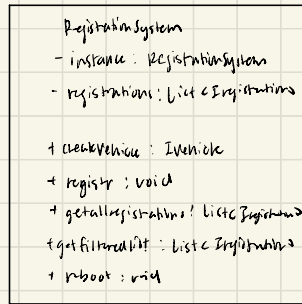 RegistrationSystem
- instance : RegistrationSystem
- registrations : List < Iregistration>
+ createVehicle : Ivehicle
+ register : void
+ getallregistrations : List< Iregistration>
+ getfilteredlist : List < Iregistration>
+ reboot : void